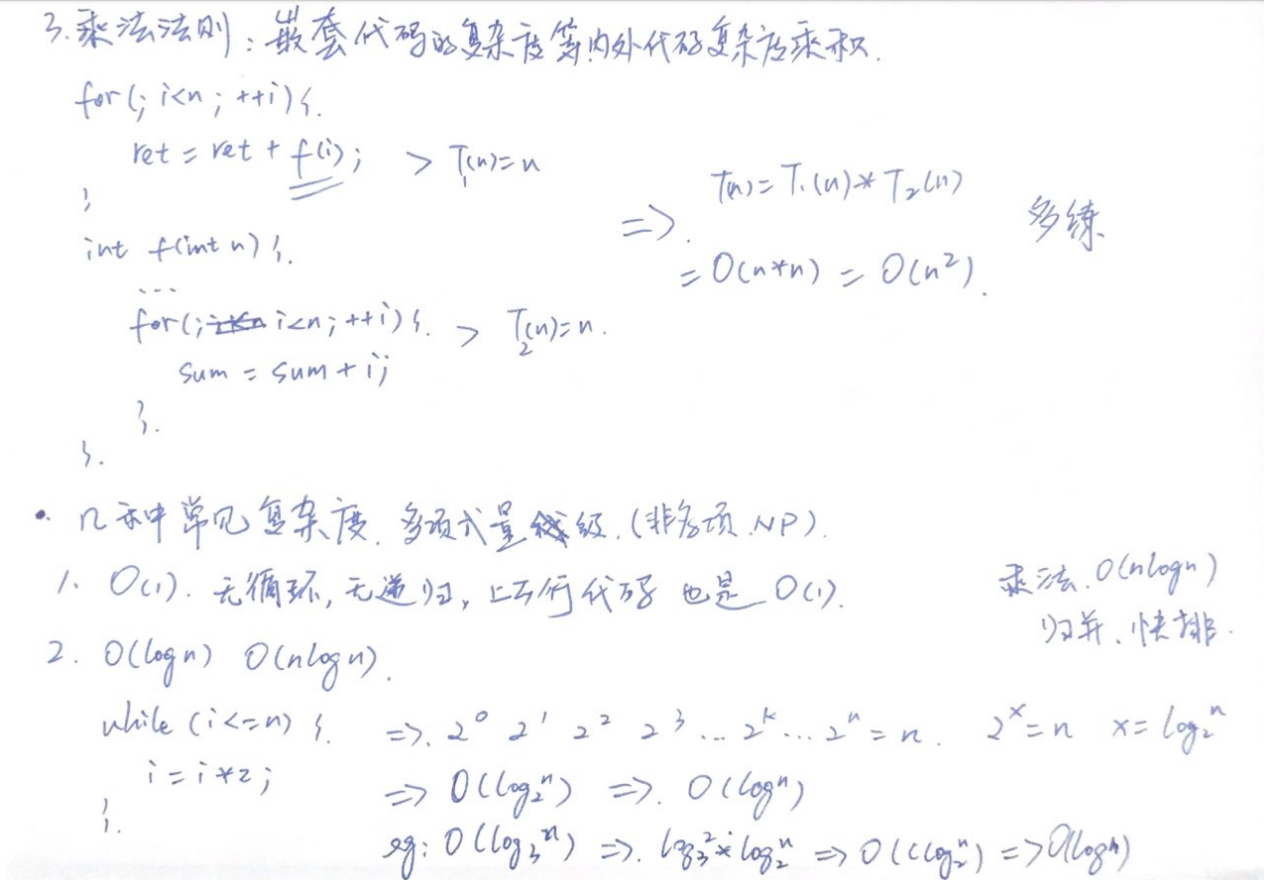 3.乘法法则:嵌套代码的复杂度等内外代码复杂度乘积.
for(; i<n ; ++i){.
ret = ret + f(i); > T1(n)=n
}
=>. T(n)=T1(n)*T2(n) 多练
int f(int n){.
= O(n*n) = O(n²).
...
for(; i<n; ++i){. > T2(n)=n.
sum = sum + i;
}.
}.
• 几种常见复杂度. 多项式量级.(非多项.NP).
1. O(1). 无循环,无递归,上万行代码 也是 O(1).
乘法.O(nlogn)
归并、快排.
2. O(logn) O(nlogn).
while (i<=n) {. =>. 2⁰ 2¹ 2² 2³ ... 2ᵏ ... 2ⁿ = n. 2ˣ = n x = log₂ⁿ
i = i*2; => O(log₂ⁿ) =>. O(logⁿ)
}.
eg: O(log₃ⁿ) =>. log₃²*log₂ⁿ => O(Clog₂ⁿ) => O(logn)